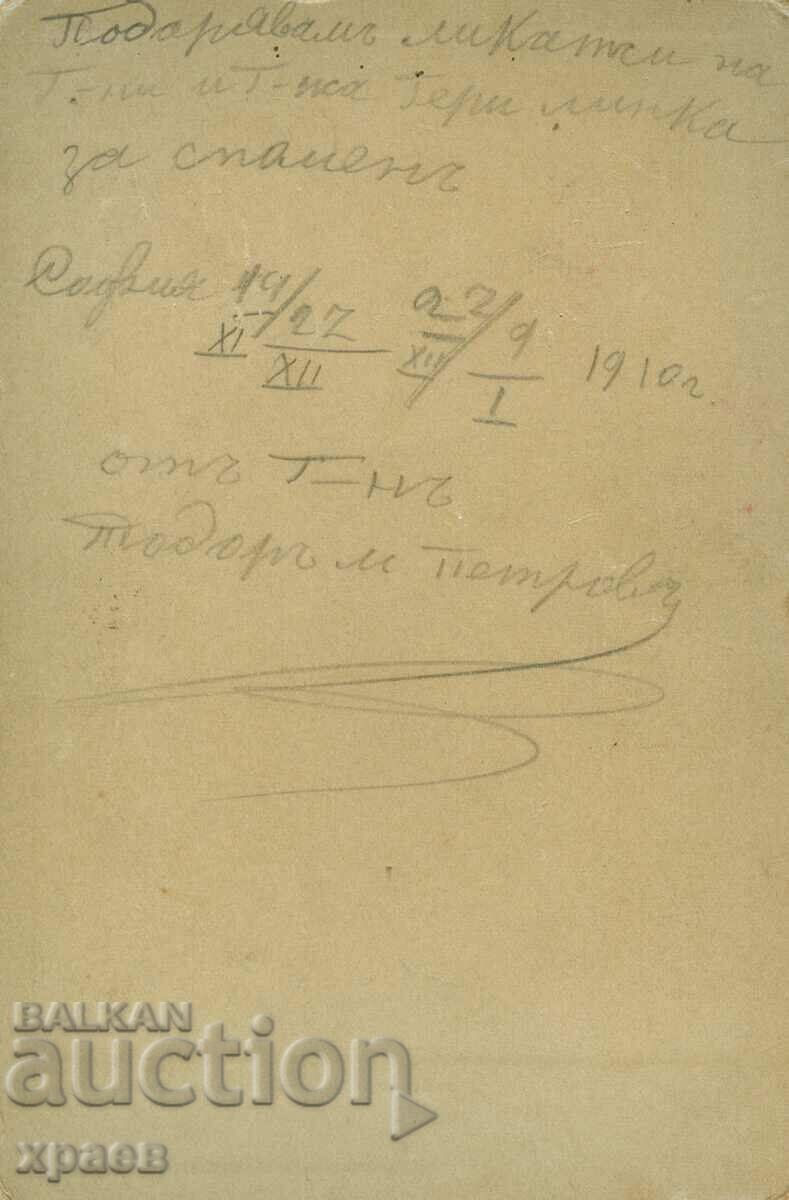 Подарявамъ ликатси на
Г-ни и Г-жа Гери линка
за споменъ
София 19/XI 27/XII 27/XII 9/I 1910 г.
отъ Г-нъ
Тодоръ М Петровъ
BALKAN
auction
храев